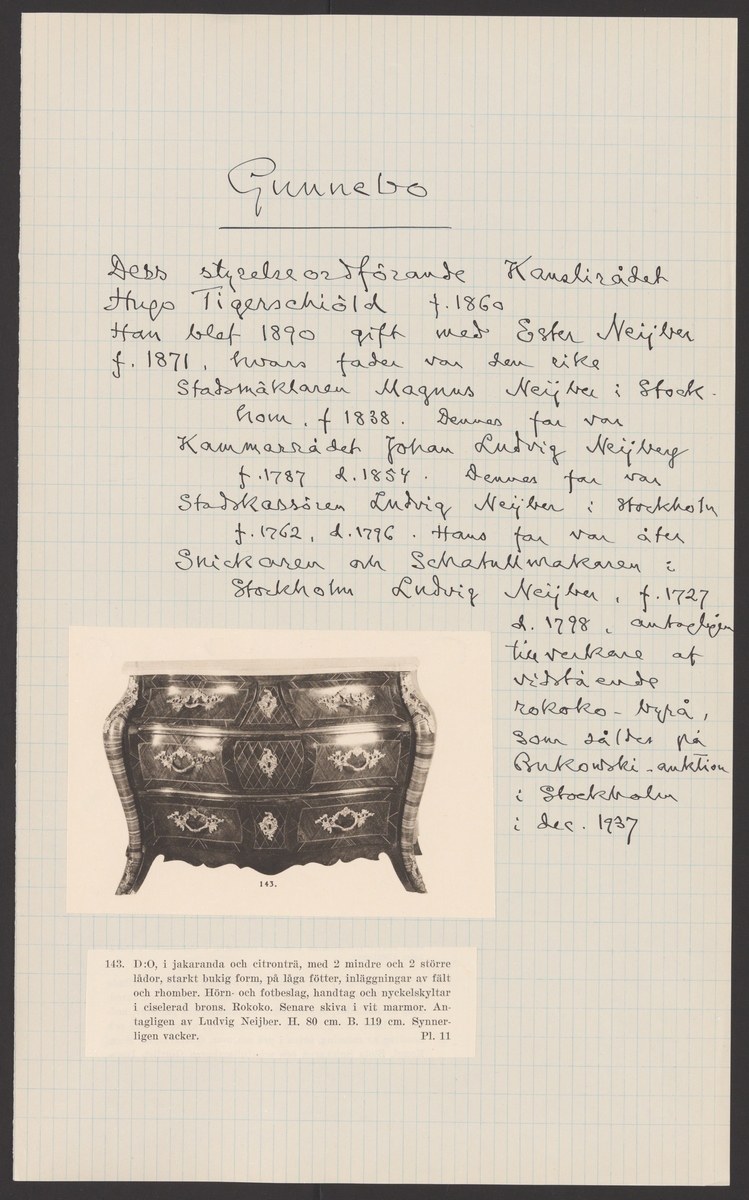 Gunnebo
Dess styrelseordförande Kanslirådet
Hugo Tigerschiöld f. 1860
Han blef 1890 gift med Ester Neijber
f. 1871, hvars fader var den rike
Stadsmäklaren Magnus Neijber i Stock-
hom, f 1838. Dennes far var
Kammarrådet Johan Ludvig Neijberg
f. 1787 d. 1854. Dennes far var
Stadskassören Ludvig Neijber i Stockholm
f. 1762, d. 1796. Hans far var åter
Snickaren och Schatullmakaren i
Stockholm Ludvig Neijber, f. 1727
d. 1798, antagligen
tillverkare af
vidstående
rokoko-byrå,
som såldes på
Bukowski-auktion
i Stockholm
i dec. 1937
143.
143. D:O, i jakaranda och citronträ, med 2 mindre och 2 större
lådor, starkt bukig form, på låga fötter, inläggningar av fält
och rhomber. Hörn- och fotbeslag, handtag och nyckelskyltar
i ciselerad brons. Rokoko. Senare skiva i vit marmor. An-
tagligen av Ludvig Neijber. H. 80 cm. B. 119 cm. Synner-
ligen vacker. Pl. 11